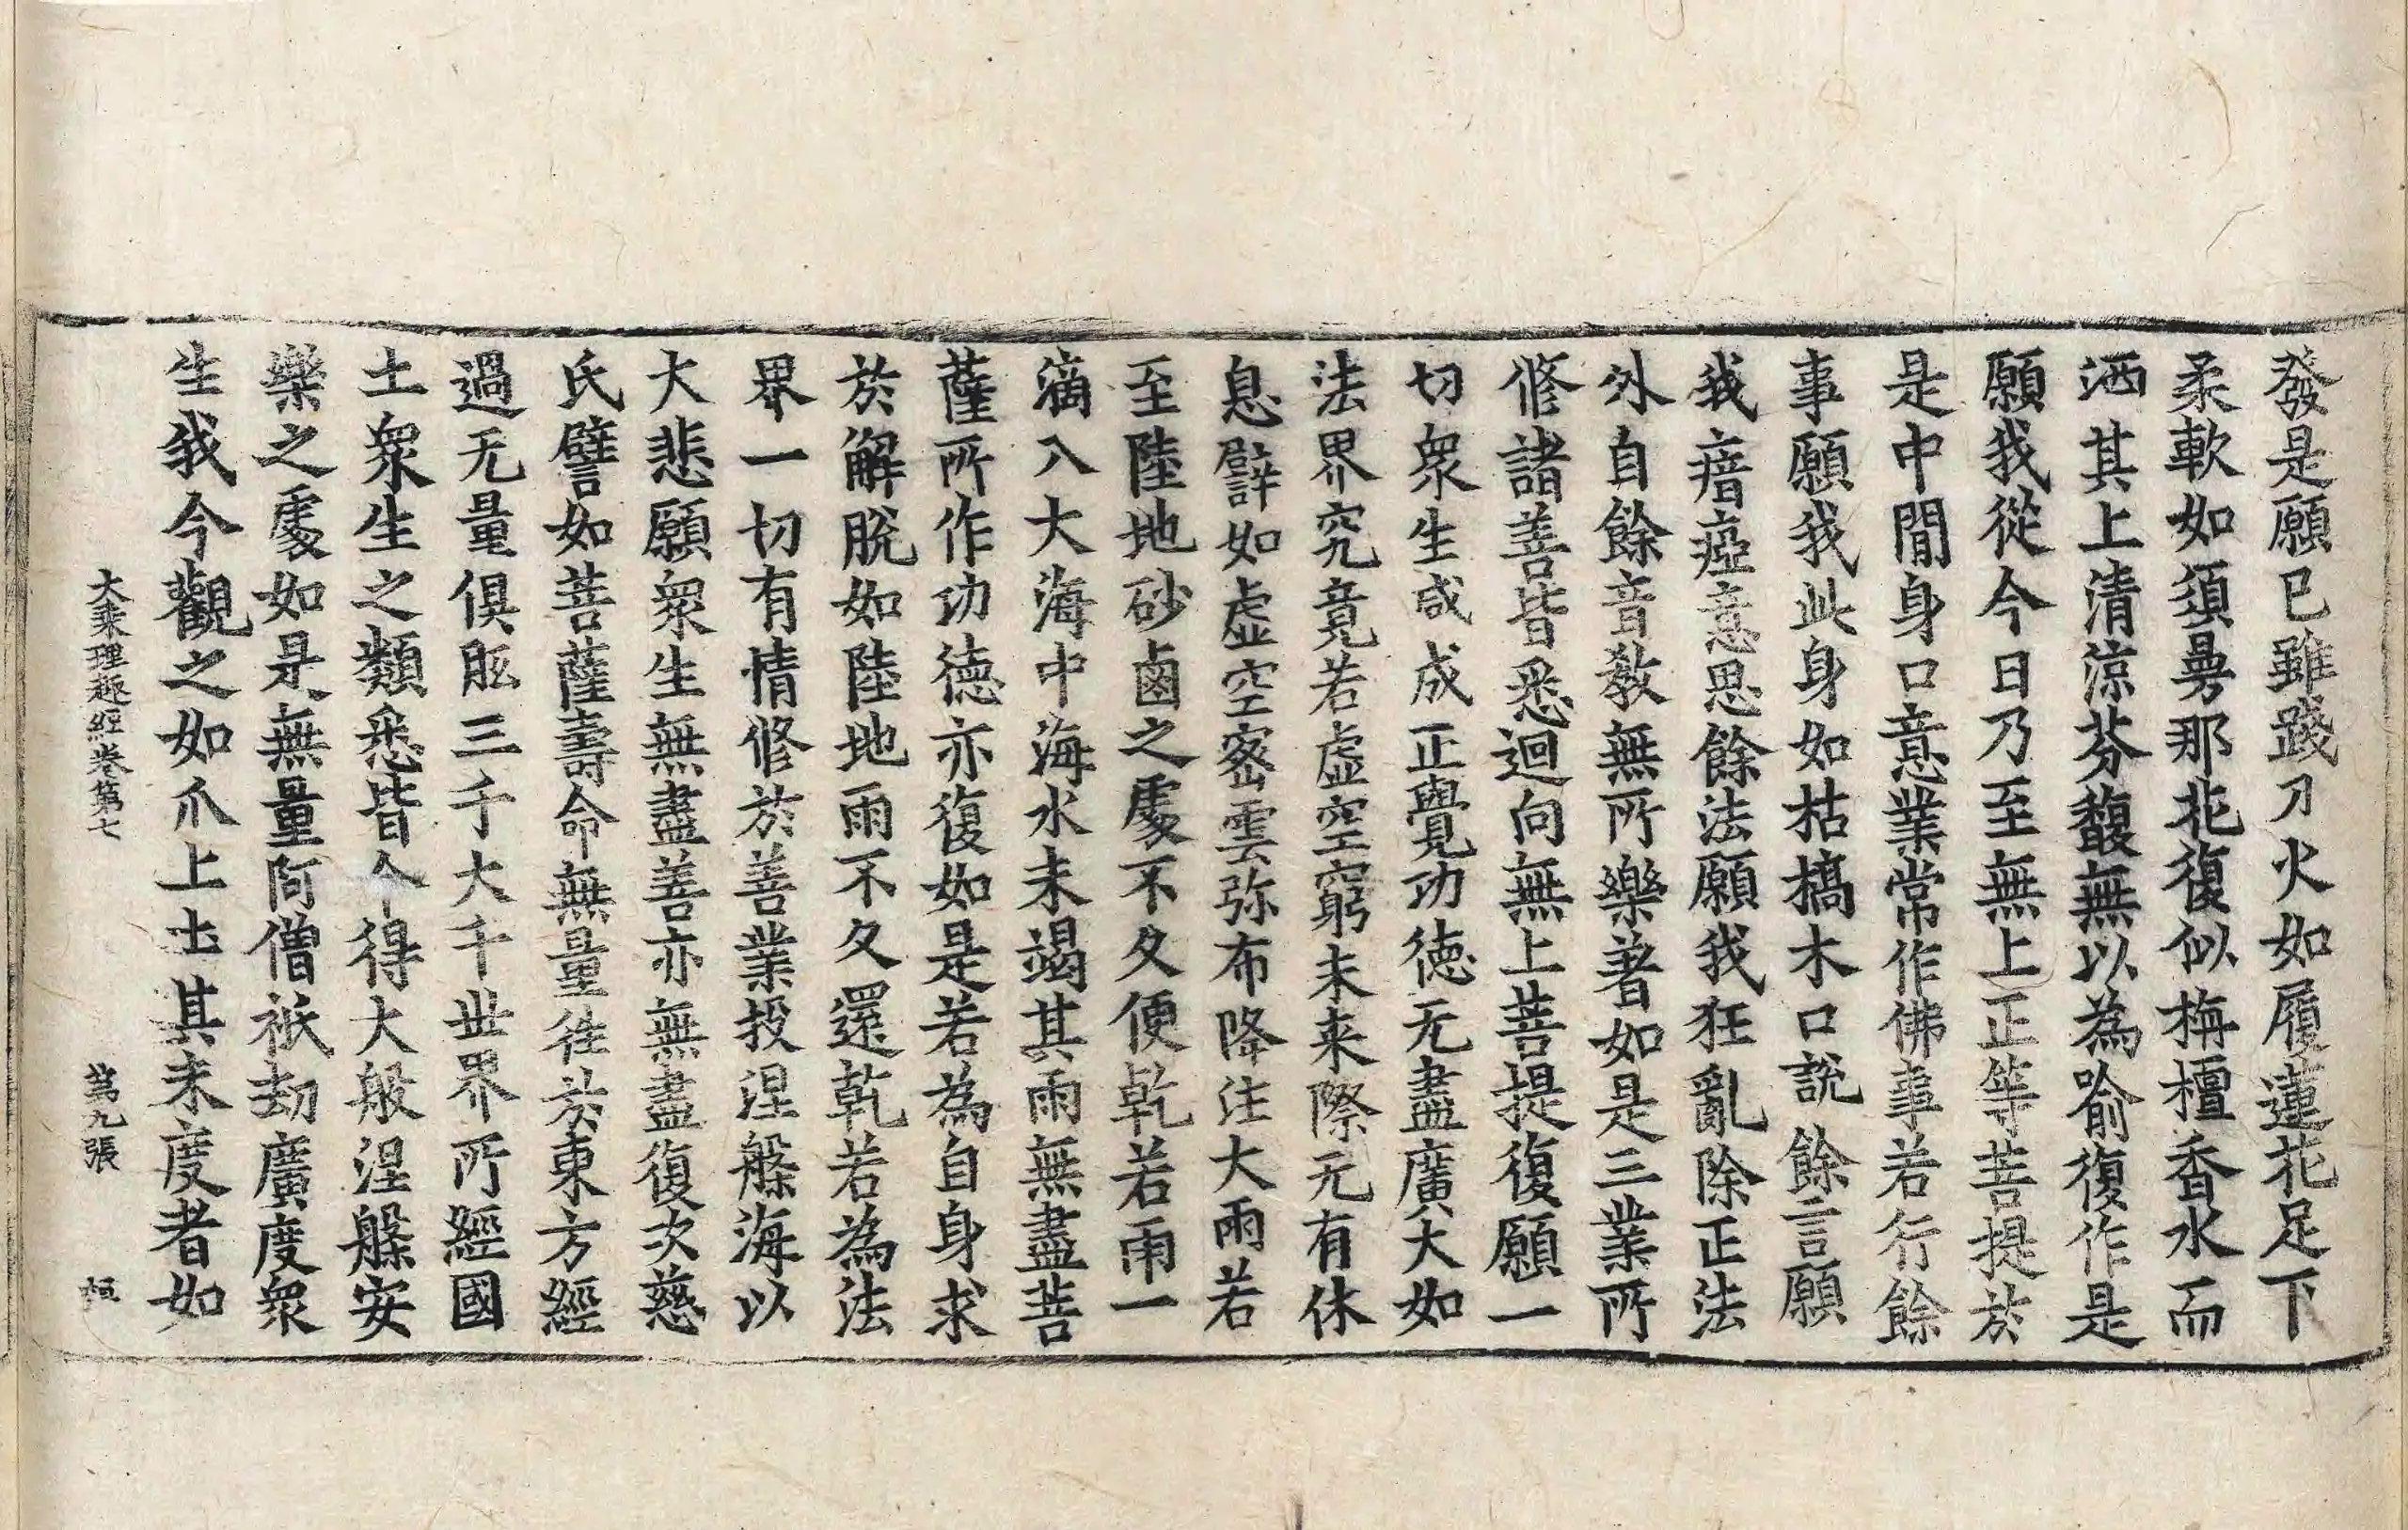 發是願已雖踐刀火如履蓮花足下
柔軟如須曼那花復似栴檀香水而
洒其上清涼芬馥無以為喻復作是
願我從今日乃至無上正等菩提於
是中閒身口意業常作佛事若行餘
事願我此身如枯槁木口說餘言願
我瘖瘂意思餘法願我狂亂除正法
外自餘音教無所樂著如是三業所
修諸善皆悉迴向無上菩提復願一
切衆生咸成正覺功德无盡廣大如
法界究竟若虛空窮未来際无有休
息譬如虛空密雲弥布降注大雨若
至陸地砂鹵之處不久便乾若雨一
滴入大海中海水未竭其雨無盡菩
薩所作功德亦復如是若為自身求
於解脫如陸地雨不久還乾若為法
界一切有情修於善業投涅槃海以
大悲願衆生無盡善亦無盡復次慈
氏譬如菩薩壽命無量往於東方經
過无量俱胝三千大千世界所經國
土衆生之類悉皆令得大般涅槃安
樂之處如是無量阿僧祇劫廣度衆
生我今觀之如爪上土其未度者如
大乘理趣經卷第七 第九張 恒